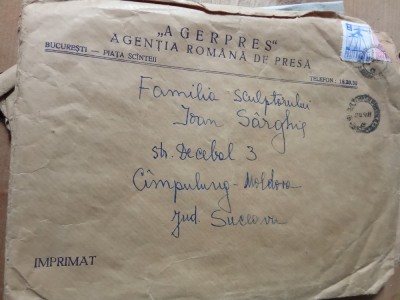 „AGERPRES"
AGENȚIA ROMÂNĂ DE PRESĂ
BUCUREȘTI — PIAȚA SCÎNTEII
TELEFON:
Familia sculptorului
Ioan Sârghie
str. Decebal 3
Cîmpulung-Moldova
Jud. Suceava
IMPRIMAT